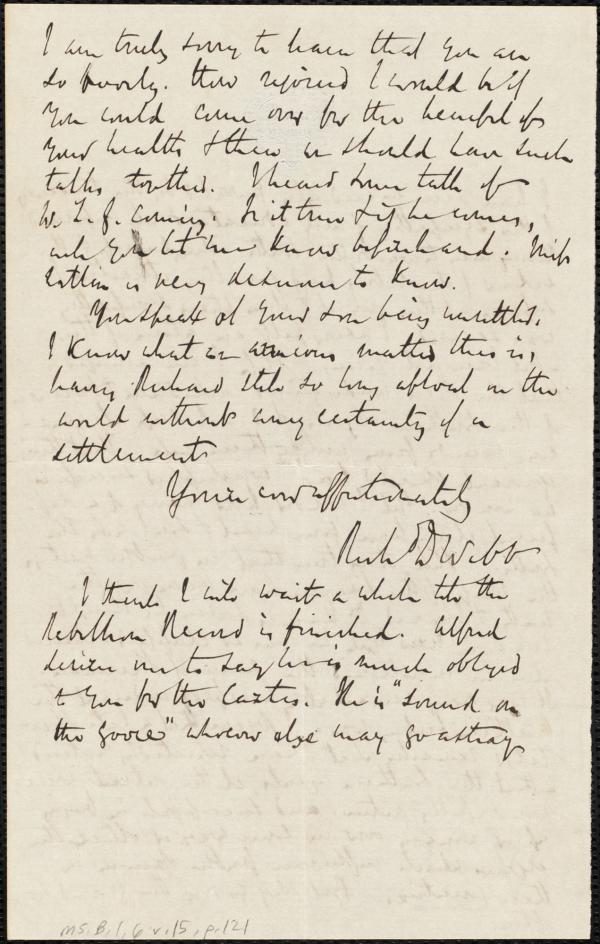 I am truly sorry to learn that you are
so poorly. How rejoiced I would be if
you could come over for the benefit of
your health & then we should have such
talks together. I heard some talk of
W. L. G. coming. Is it true & if he comes,
will you let me know beforehand. Miss
Estlin is very desirous to know.
You speak of your son being unsettled.
I know what an anxious matter this is,
having Richard still so long afloat on the
world without any certainty of a
settlement
Yours ever affectionately
Richd D Webb
I think I will wait a while till the
Rebellion Record is finished. Alfred
desires me to say he is much obliged
to you for the Cartes. He is "sound on
the goose" whoever else may go astray
MS. B. 1. 6 v. 15, p. 121